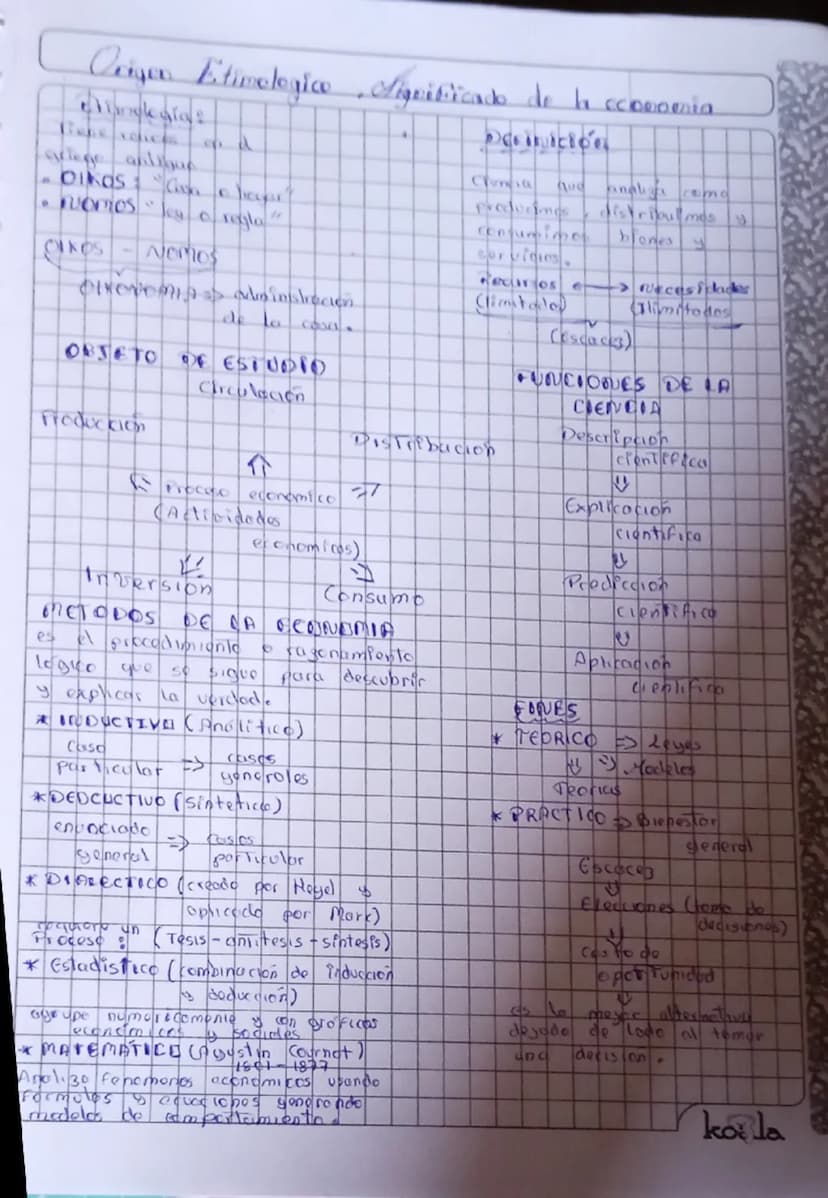 Origen Etimologico, significado de la economia
Etimología:
Tiene raíces en el
griego antiguo
• OIKOS: "Casa o hogar"
• NOMOS "ley o regla"
OIKOS - NOMOS
OIKONOMIA => administración
de la casa.
OBJETO DE ESTUDIO
Circulación
Producción
Distribucion
⇑
Proceso economico =>
(Actividades
economicas)
Inversion
Consumo
METODOS DE LA ECONOMIA
es el procedimiento o razonamiento
lógico que se sigue para descubrir
y explicar la verdad.
* INDUCTIVO (Analitico)
Caso
particular => casos
generales
* DEDCUCTIVO (sintetico)
enunciado
general => casos
particular
* DIALECTICO (creado por Hegel y
aplicado por Marx)
requiere un
Proceso: (Tesis-antitesis-sintesis)
* Estadistico (combinacion de induccion
y deduccion)
agrupa numericamente y con graficas
economicas y sociales
* MATEMATICO (Agustin Cournot)
1801-1877
Analiza fenomenos economicos usando
formulas y equaciones generando
modelos de comportamiento.
DEFINICIÓN
Ciencia que analiza como
producimos, distribuimos y
consumimos bienes y
servicios.
Recursos ⟷ necesidades
(limitado) (Ilimitados)
(escaces)
FUNCIONES DE LA
CIENCIA
Descripcion
cientifica
⇓
Explicacion
cientifica
⇓
Prediccion
cientifica
⇓
Aplicacion
cientifica
FINES
* TEORICO => Leyes
⇓ => Modelos
Teorias
* PRACTICO => Bienestar
general
Escaces
⇓
Elecciones (toma de
decisiones)
⇓
costo de
oportunidad
⇓
es la mejor alternativa
dejada de lado al tomar
una decision.
koala